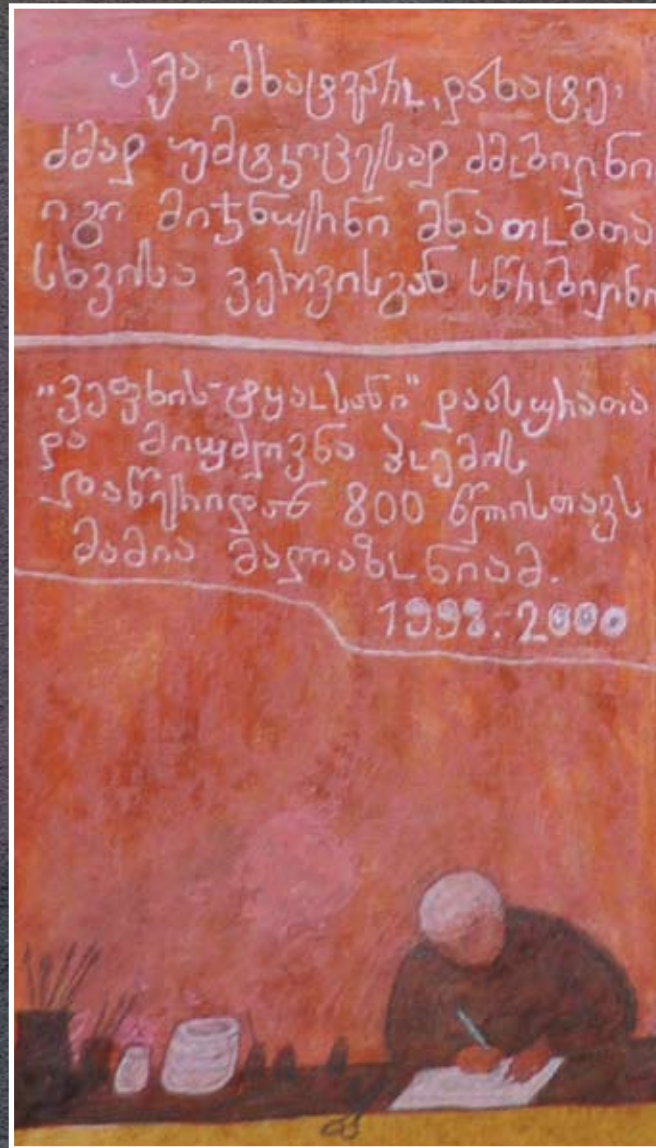 აჰა, მხატვარო, დახატე
ძმად უმტკიცესად ძმობილნი
იგი მიჯნურნი მნათობთა
სხვისა ვერვისგან სწრობილნი
"ვეფხის-ტყაოსანი" დაასურათა
და მიუძღვნა პოემის
დაწერიდან 800 წლისთავს
მამია მალაზონიამ.
1998-2000